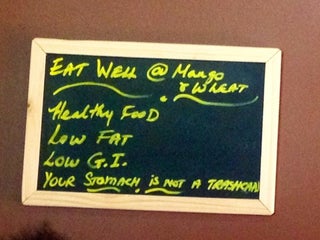 EAT WELL @ Mango
& WHEAT
Healthy FOOD
LOW FAT
LOW G.I.
YOUR STOMACH IS NOT A TRASHCAN